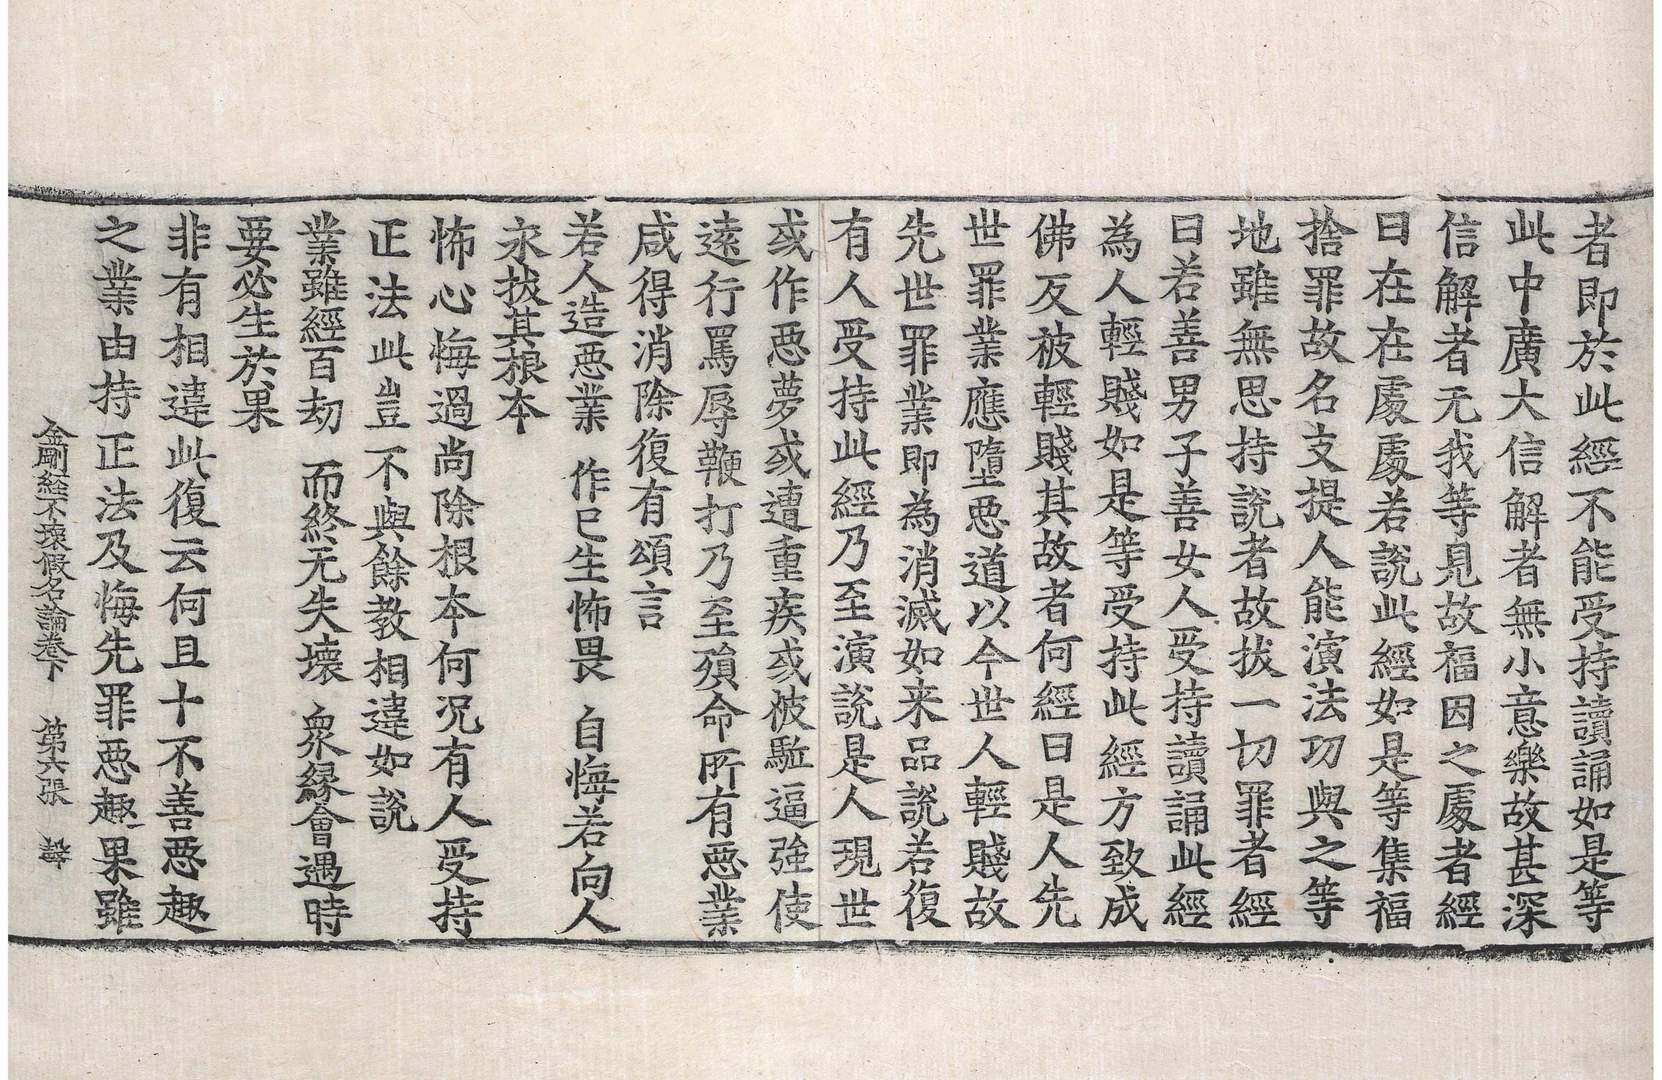 者即於此經不能受持讀誦如是等
此中廣大信解者無小意樂故甚深
信解者无我等見故福因之處者經
曰在在處處若說此經如是等集福
捨罪故名支提人能演法功與之等
地雖無思持說者故拔一切罪者經
曰若善男子善女人受持讀誦此經
為人輕賤如是等受持此經方致成
佛反被輕賤其故者何經曰是人先
世罪業應墮惡道以今世人輕賤故
先世罪業即為消滅如来品說若復
有人受持此經乃至演說是人現世
或作惡夢或遭重疾或被駈逼強使
遠行罵辱鞭打乃至殞命所有惡業
咸得消除復有頌言
若人造惡業 作已生怖畏 自悔若向人
永拔其根本
怖心悔過尚除根本何況有人受持
正法此豈不與餘教相違如說
業雖經百劫 而終无失壞 衆緣會遇時
要必生於果
非有相違此復云何且十不善惡趣
之業由持正法及悔先罪惡趣果雖
金剛経不壞假名論卷下 第六張